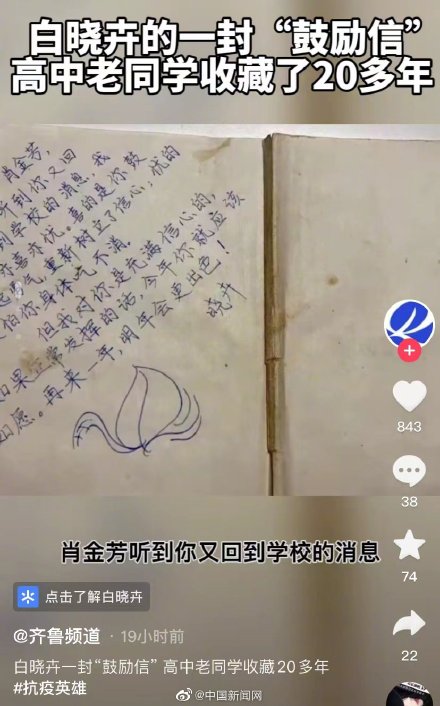 白晓卉的一封“鼓励信”
高中老同学收藏了20多年
肖金芳,
听到你又回
到学校的消息,我
亦喜亦忧。喜的是你鼓
起勇气,重新树立了信心;忧的
怕你身体吃不消。
但我对你是充满信心的,
如果正常发挥的话,今年你就应该
如愿。再来一年,明年会更出色!
晓卉
843
38
74
22
肖金芳听到你又回到学校的消息
点击了解白晓卉
@齐鲁频道 · 19小时前
白晓卉一封“鼓励信” 高中老同学收藏20多年
#抗疫英雄
@中国新闻网